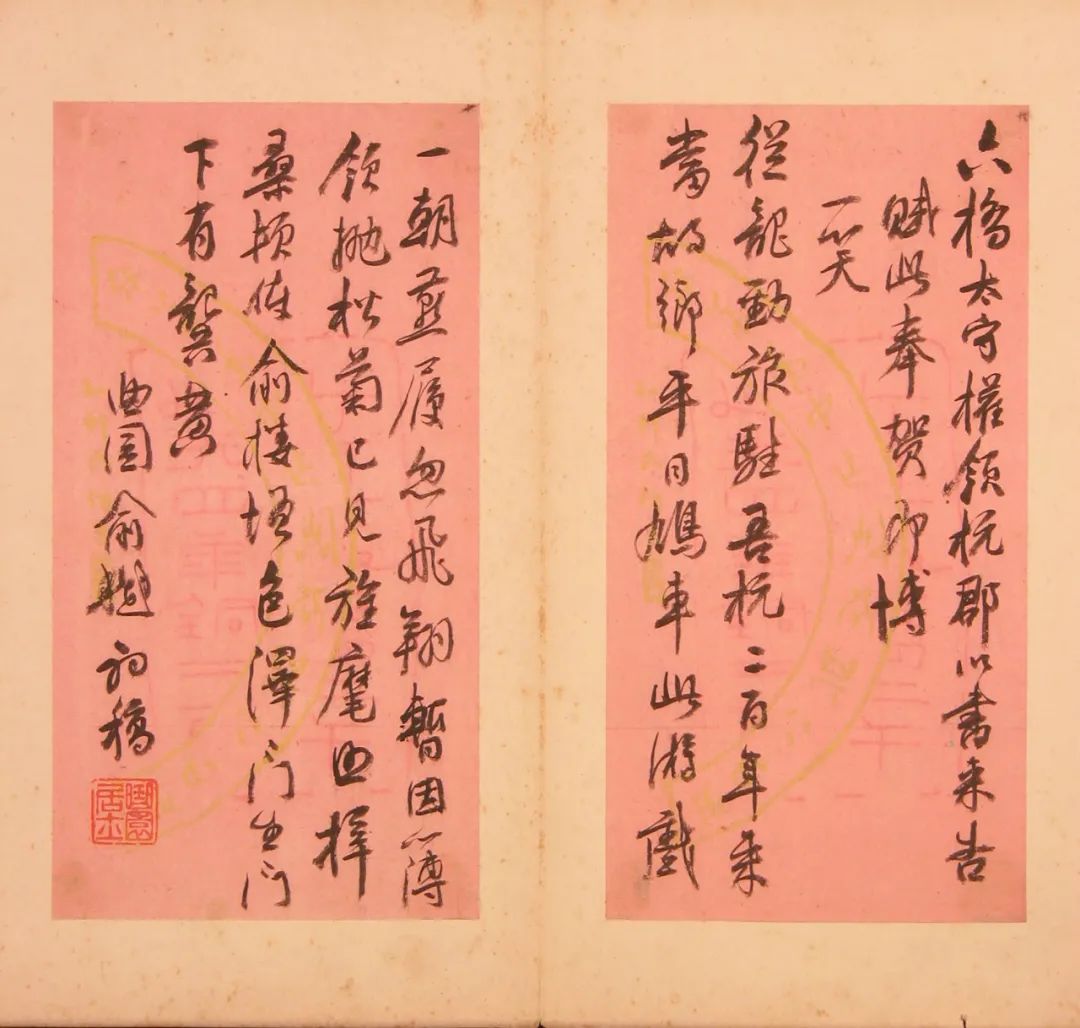 六橋太守權領杭郡以書來告
賦此奉賀即博
一笑
從龍勁旅駐吾杭二百年來
當故鄉平日鳩車此游戲
一朝鳧履忽飛翔暫因簿
領拋松菊已見旌麾梓
桑頓使俞樓增色澤門生門
下有龔黃
曲園俞樾初稿
曲園居士